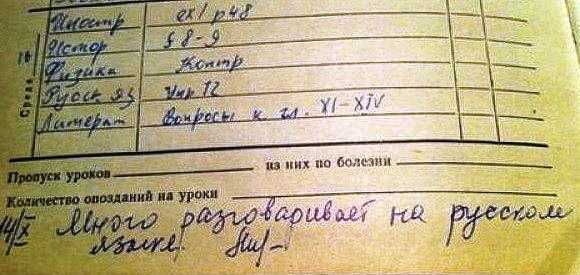 Иностр ex1 p48
Истор § 8-9
Физика Контр
Русск яз Упр 12
Литерат Вопросы к гл. XI-XIV
Среда 16
Пропуск уроков из них по болезни
Количество опозданий на уроки
14/X Много разговаривает на русском
языке.